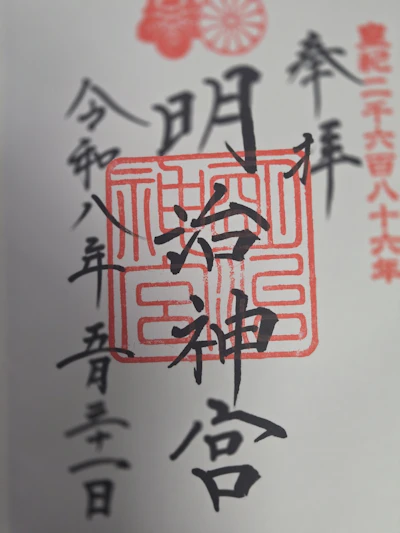 皇紀二千六百八十六年
奉拝
明治神宮
令和八年五月三十一日
明治神宮